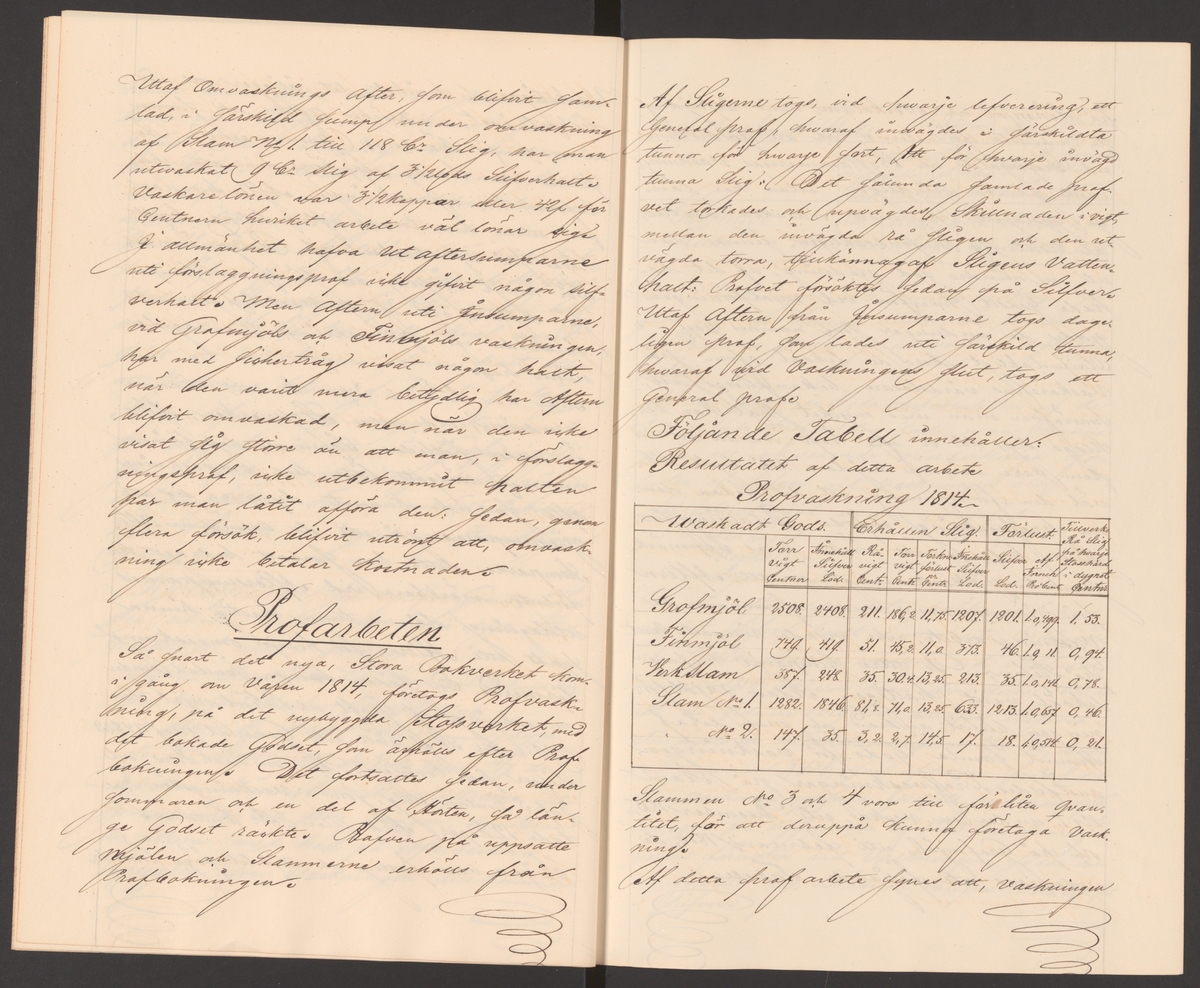 Utaf Omvasknings After, som blifvit sam-
lad, i särskild sump under omvaskning
af Slam No 1. till 118 C:r Slig, har man
utvaskat 9 C:r slig af 3 1/2 lods Silfverhalt.
Vaskarelönen var 3 1/2 kappar eller 42 f för
Centnern hvilket arbete väl lönar sig.
I allmänhet hafva Ut aftersumparne
uti förslaggningsprof icke gifvit någon silf-
verhalt. Men Aftern uti Insumparne,
vid Grofmjöls och Finmjöls vaskningen,
har med Sichertråg visat någon halt,
när den varit mera betydlig har Aftern
blifvit omvaskad, men när den icke
visat sig större än att man, i förslagg-
ningsprof, icke utbekommit halten
har man låtit afföra den: sedan, genom
flera försök, blifvit utrönt att, omvask-
ning icke betalar kostnaden.
Profarbeten
Så snart det nya, Stora Bokverket kom
i gång om Våren 1814 företogs Profvask-
ning, på det nybyggda Stossverket, med
det bokade Godset, som erhölls efter Prof
bokningen. Det fortsattes sedan, under
sommaren och en del af Hösten, så län-
ge Godset räckte. Profven på uppsatte
mjölen och Slammerne erhölls från
Profbokningen.
Af Sligerne togs, vid hwarje lefverering, ett
General prof, hwaraf invägdes i särskildta
tunnor för hwarje sort, Ett för hwarje invägd
tunna Slig: Det sålunda samlade prof-
vet torkades och upvägdes, Skillnaden i vigt
mellan den invägda rå sligen och den ut
vägda torra, tillkännagaf Sligens Vatten-
halt: Profvet försöktes sedan på Silfver.
Utaf Aftern från Insumparne togs dage-
ligen prof, som lades uti särskild tunna,
hwaraf vid Vaskningens slut, togs ett
General prof.
Följande Tabell innehåller:
Resultatet af detta arbete
Profvaskning 1814.
Waskadt Gods. Erhållen Slig. Förlust. Tillverk. Rå Slig på hwarje Stosshärd i dygnet Centner
Torr vigt Centner Innehåll Silfver Lod. Rå vigt Cent: Torr vigt Cent: Torkn. förlust pr Centr. Innehåll Silfver Lod. Silfver Lod. Af Inneh.
Grofmjöl 2508. 2408. 211. 186,2 11,75. 1207. 1201. 1.0,499. 1. 53.
Finmjöl 749. 419. 51. 45,2. 11,0. 373. 46. 1.9 11. 0, 94.
Verkslam 387. 248. 35. 30.4. 13,25. 213. 35. 1.0,141. 0, 78.
Slam No 1. 1282. 1846. 81,2. 71,0. 13,25. 633. 1213. 1.0,657. 0, 46.
" No 2. 147. 35. 3,2. 2,7. 14,5. 17. 18. 1.0,514. 0, 21.
Slammen No 3 och 4 voro till för liten Qvan-
titet, för att deruppå kunna företaga vask-
ning.
Af detta prof arbete synes att, vaskningen